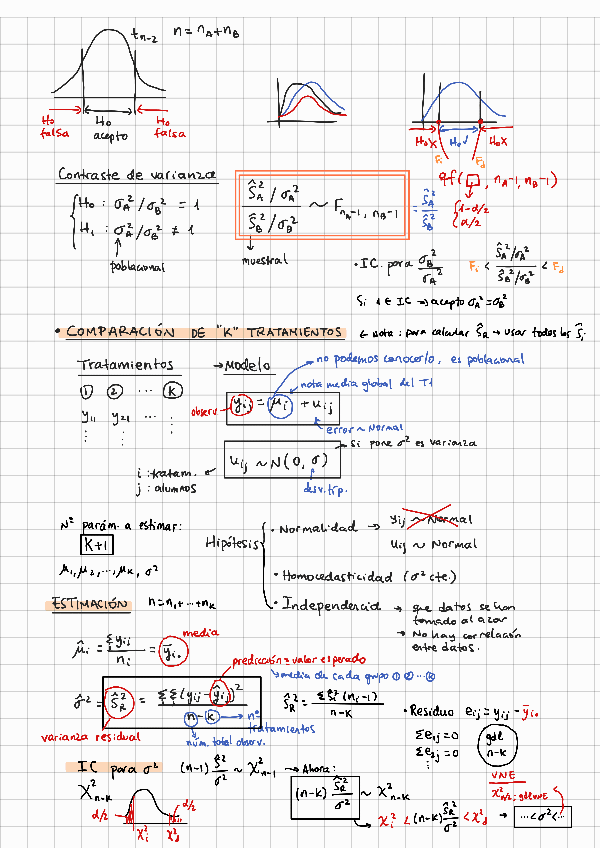 t n-2   n = nA + nB
H0 falsa   H0 acepto   H0 falsa
H0 X   H0 ✓   H0 X
Fi   Fd
qf(□, nA-1, nB-1)
{1-α/2
α/2
Contraste de varianza
H0 : σA²/σB² = 1
H1 : σA²/σB² ≠ 1
poblacional
(ŜA²/σA²)/(ŜB²/σB²) ~ F nA-1, nB-1 = ŜA²/ŜB²
muestral
· IC. para σB²/σA²   Fi < (ŜA²/σA²)/(ŜB²/σB²) < Fd
Si 1 ∈ IC → acepto σA² = σB²
• COMPARACIÓN DE "K" TRATAMIENTOS   ← nota: para calcular ŜR → usar todos los Ŝi
Tratamientos   → Modelo
no podemos conocerlo, es poblacional
nota media global del T1
① ② ... Ⓚ
y11 y21 ... :
observ.   yij = μi + uij
error ~ Normal
si pone σ² es varianza
uij ~ N(0, σ)
desv. típ.
i : tratam.
j : alumnos
Nº parám. a estimar:
K+1
μ1, μ2, ..., μK, σ²
Hipótesis
· Normalidad → yij ~ Normal
uij ~ Normal
· Homocedasticidad (σ² cte.)
· Independencia → que datos se han tomado al azar
→ No hay correlación entre datos.
ESTIMACIÓN   n = n1 + ... + nK
μ̂i = Σyij / ni = ȳi.   media
predicción = valor esperado
↳ media de cada grupo ① ② ... Ⓚ
σ̂² = ŜR² = ΣΣ(yij - ŷij)² / n-K
varianza residual
núm. total observ.
nº tratamientos
ŜR² = ΣŜi²(ni-1) / n-K
• Residuo eij = yij - ȳi.
Σeij = 0
Σeij = 0
:
gdl
n-K
IC para σ²   (n-1) Ŝ²/σ² ~ χ² n-1 → Ahora:
(n-K) ŜR²/σ² ~ χ² n-K
χ² n-K
α/2   χi²   χd²   α/2
VNE
χi² < (n-K) ŜR²/σ² < χd² → ... < σ² < ...